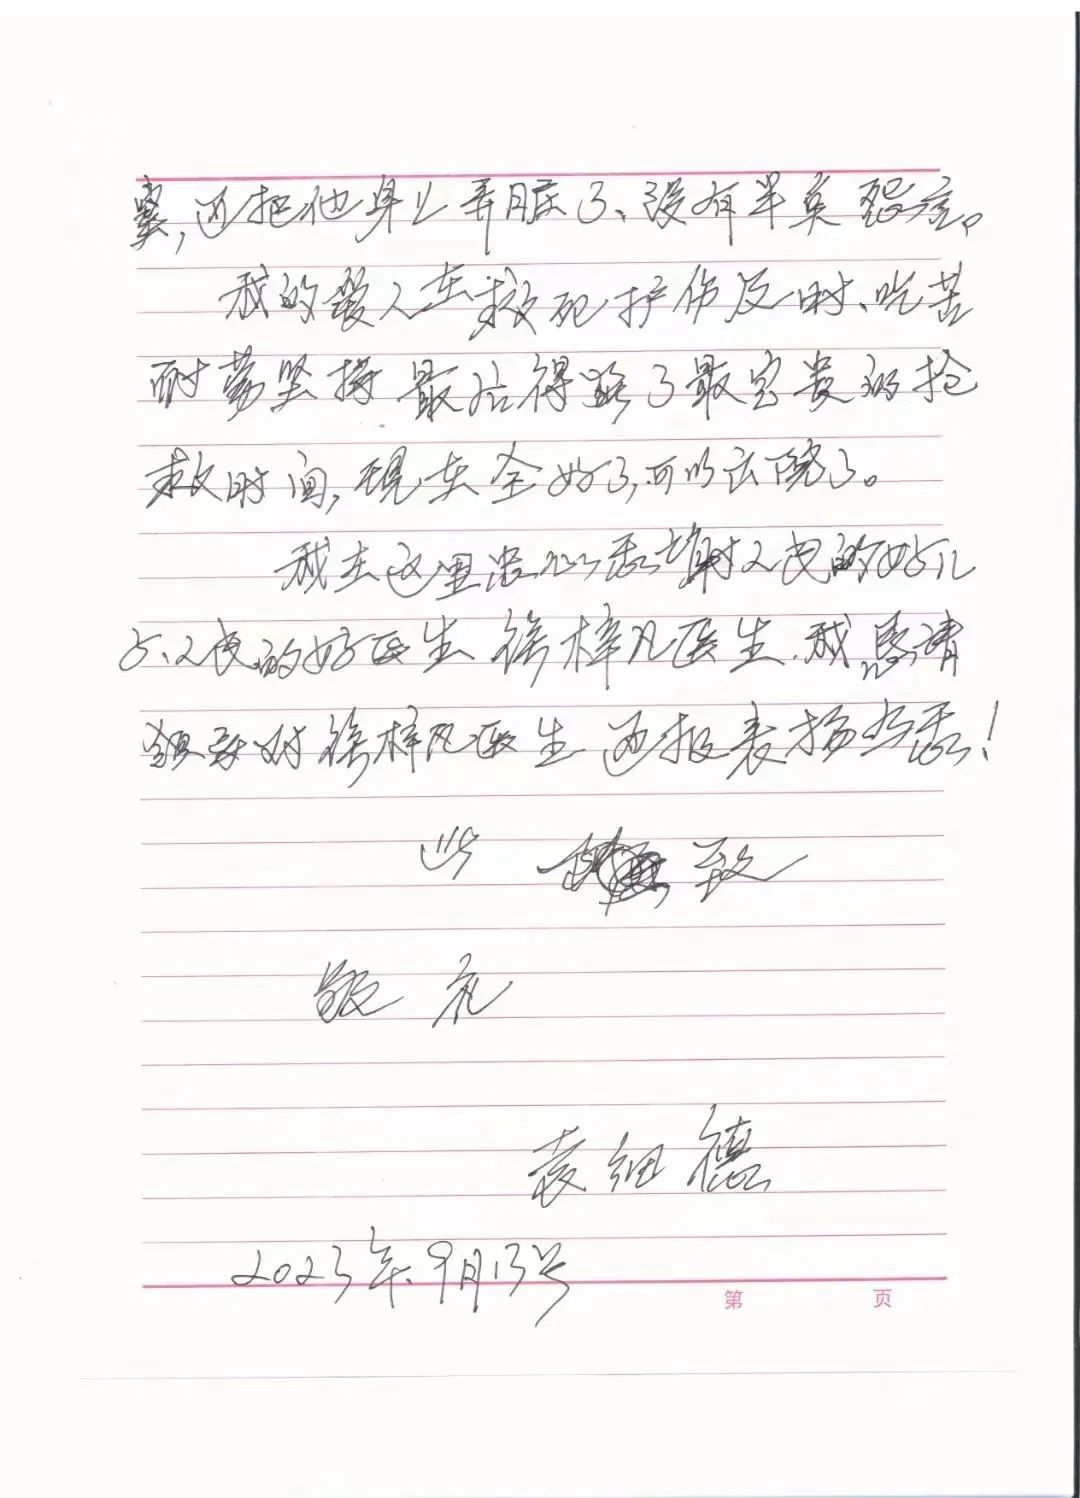 还把他身上弄脏了、没有半莫怨言。
我的爱人在救死护伤及时、吃苦
耐劳坚持最后得到了最宝贵的抢
救时间,现在全好了,可以出院了。
我在这里忠心感谢人民的好儿
子、人民的好医生徐梓凡医生、我恳请
领导对徐梓凡医生通报表扬
此致
敬礼
袁细德
2023年9月13号
第 页